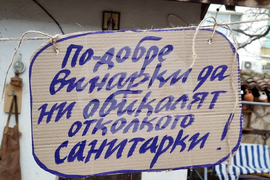 По-добре
винарки да
ни обикалят
отколкото
санитарки!